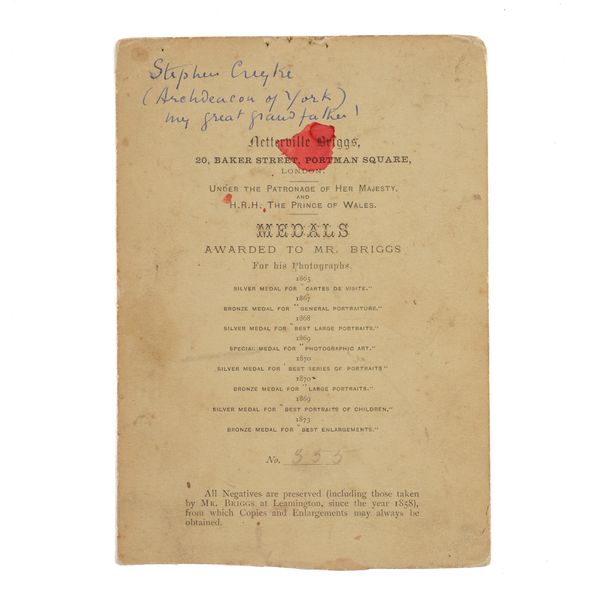 Stephen Creyke
(Archdeacon of York)
my great grandfather!
Netterville Briggs,
20, BAKER STREET, PORTMAN SQUARE,
LONDON.
UNDER THE PATRONAGE OF HER MAJESTY,
AND
H.R.H. THE PRINCE OF WALES.
MEDALS
AWARDED TO MR. BRIGGS
For his Photographs.
1865
SILVER MEDAL FOR "CARTES DE VISITE."
1867
BRONZE MEDAL FOR "GENERAL PORTRAITURE."
1868
SILVER MEDAL FOR "BEST LARGE PORTRAITS."
1869
SPECIAL MEDAL FOR "PHOTOGRAPHIC ART."
1870
SILVER MEDAL FOR "BEST SERIES OF PORTRAITS"
1870
BRONZE MEDAL FOR "LARGE PORTRAITS."
1869
SILVER MEDAL FOR "BEST PORTRAITS OF CHILDREN,"
1873
BRONZE MEDAL FOR "BEST ENLARGEMENTS."
No. 355
All Negatives are preserved (including those taken
by MR. BRIGGS at Leamington, since the year 1858),
from which Copies and Enlargements may always be
obtained.